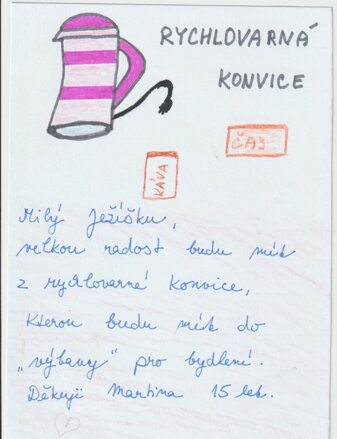 RYCHLOVARNÁ
KONVICE
ČAJ
KÁVA
Milý Ježíšku,
velkou radost budu mít
z rychlovarné konvice,
kterou budu mít do
„výbavy" pro bydlení.
Děkuji Martina 15 let.